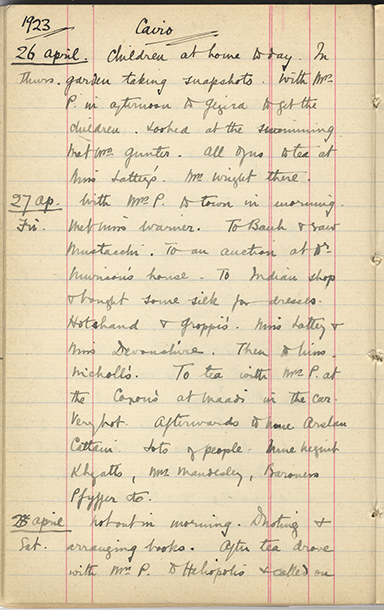 1923 Cairo
26 April. Children at home today. In
Thurs. garden taking snapshots. With Mrs.
P. in afternoon to Gezira to get the
children. Looked at the swimming
Met Mrs. Gunter. All of us to tea at
Miss Latteys. Mrs. Wright there.
27 Ap. With Mrs. P. to town in morning.
Fri. Met Miss Warner. To Bank & saw
Mustacchi. To an auction at Dr.
Murison's house. To Indian shop
& bought some silk for dresses.
Hotchand & Groppi's. Miss Lattey &
Miss Devonshire. Then to Miss
Nicholl's. To tea with Mrs. P. at
the Coxon's at Maadi in the car.
Very hot. Afterwards to Mme Arslan
Cattaui. Lots of people. Mme Neguib
Khyatts, Mrs. Maudesley, Baroness
Pfyffer etc.
28 April Not out in morning. Dusting &
Sat. arranging books. After tea drove
with Mrs. P. to Heliopolis & called on